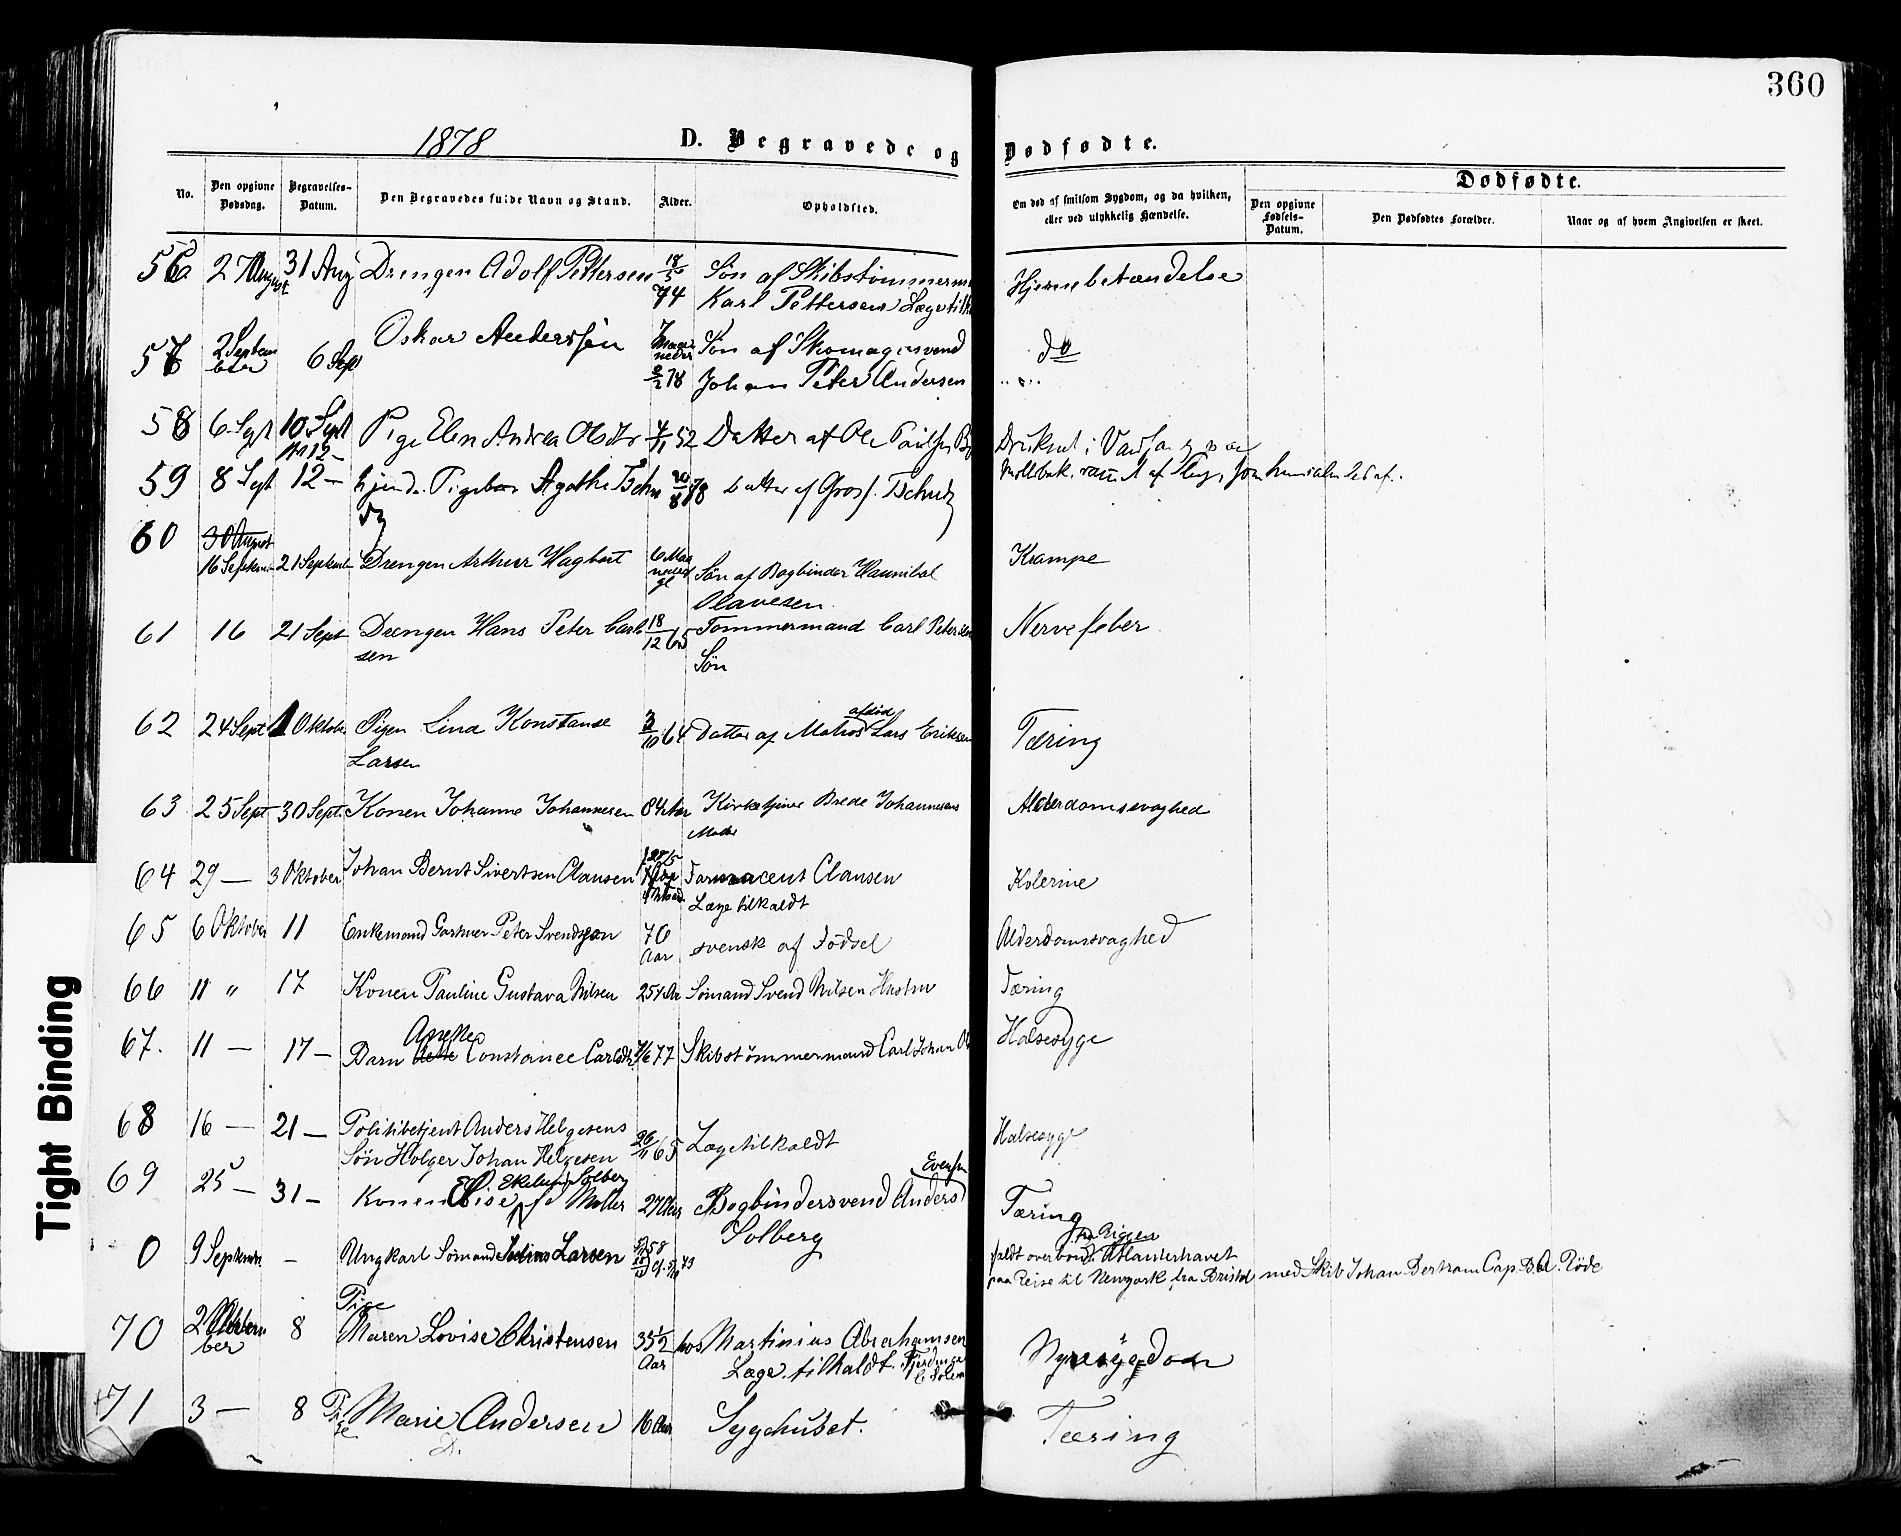 360
1878
D. Begravede og Dødfødte.
Dødfødte.
No.
Den opgivne Dødsdag.
Begravelses-Datum.
Den Begravedes fulde Navn og Stand.
Alder.
Opholdsted.
Om død af smitsom Sygdom, og da hvilken, eller ved ulykkelig Hændelse.
Den opgivne Fødsels-Datum.
Den Dødfødtes Forældre.
Naar og af hvem Angivelsen er skeet.
56 27 August 31 Aug Drengen Adolf Pettersen 18/5 74 Søn af Skibstømmerm Hjernebetændelse
Karl Pettersen Læge tilk
57 2 Septem ber 6 Sep Oskar Anderssen 7 Maa neder 2/2 78 Søn af Skomagersvend do
Johan Peter Andersen
58 6 Sept 10 Sept Pige Elen Andrea Olsdtr 52 Datter af Ole Druknet i
59 8 Sept 12 — Pigebar Agathe Tschu 78 Datter af Gros. Tschudy
dy
60 30 August
16 Septemb 21 Septemb Drengen Arthur Hagbart 6 Maa neder gl Søn af Bogbinder Hannibal Krampe
Olavesen
61 16 21 Sept Drengen Hans Peter Carl 18/12 65 Tømmermand Carl Petersen Nervefeber
sen Søn
62 24 Sept 1 Oktobe Pigen Lina Konstanse 3/10 64 Datter af afdød Matros Lars Eriksen Tæring
Larsen
63 25 Sept 30 Sept. Konen Johanne Johannesen 84 Aar Kirketjener Brede Johannesens Alderdomssvaghed
Moder
64 29 — 3 Oktober Johan Bernt Sivertsen Clausen Farmaceut Clausen Kolerine
Læge tilkaldt
65 6 Oktober 11 Enkemand Gartner Peter Svendsen 70 Aar svensk af Fødsel Alderdomssvaghed
66 11 " 17 Konen Pauline Gustava Nilsen Sømand Svend Nilsen Hustru Tæring
67. 11 — 17 — Barn Constance Carlsdtr 77 Skibstømmermand Carl Johan Halsesyge
68 16 — 21 — Politibetjent Anders Helgesens 26/11 65 Læge tilkaldt Halsesyge
Søn Holger Johan Helgesen
69 25 — 31 — Konen Elise Ekelund Solberg f Møller 27 Aar Bogbindersvend Anders Evensen Tæring
Solberg
0 9 Septembr - Ungkarl Sømand Larsen faldt overbord fra Riggen Atlanterhavet
paa Reise til Newyork fra Bristol med Skib Johan Bertram Cap. B.A. Røde
70 2 ber 8 Pige
Maren Lovise Christensen 35 1/2 Aar hos Martinius Abrahamsen Nyresygdom
Læge tilkaldt.
71 3 — 8 Pige Marie Andersen 16 Aar Sygehuset. Tæring
Tight Binding